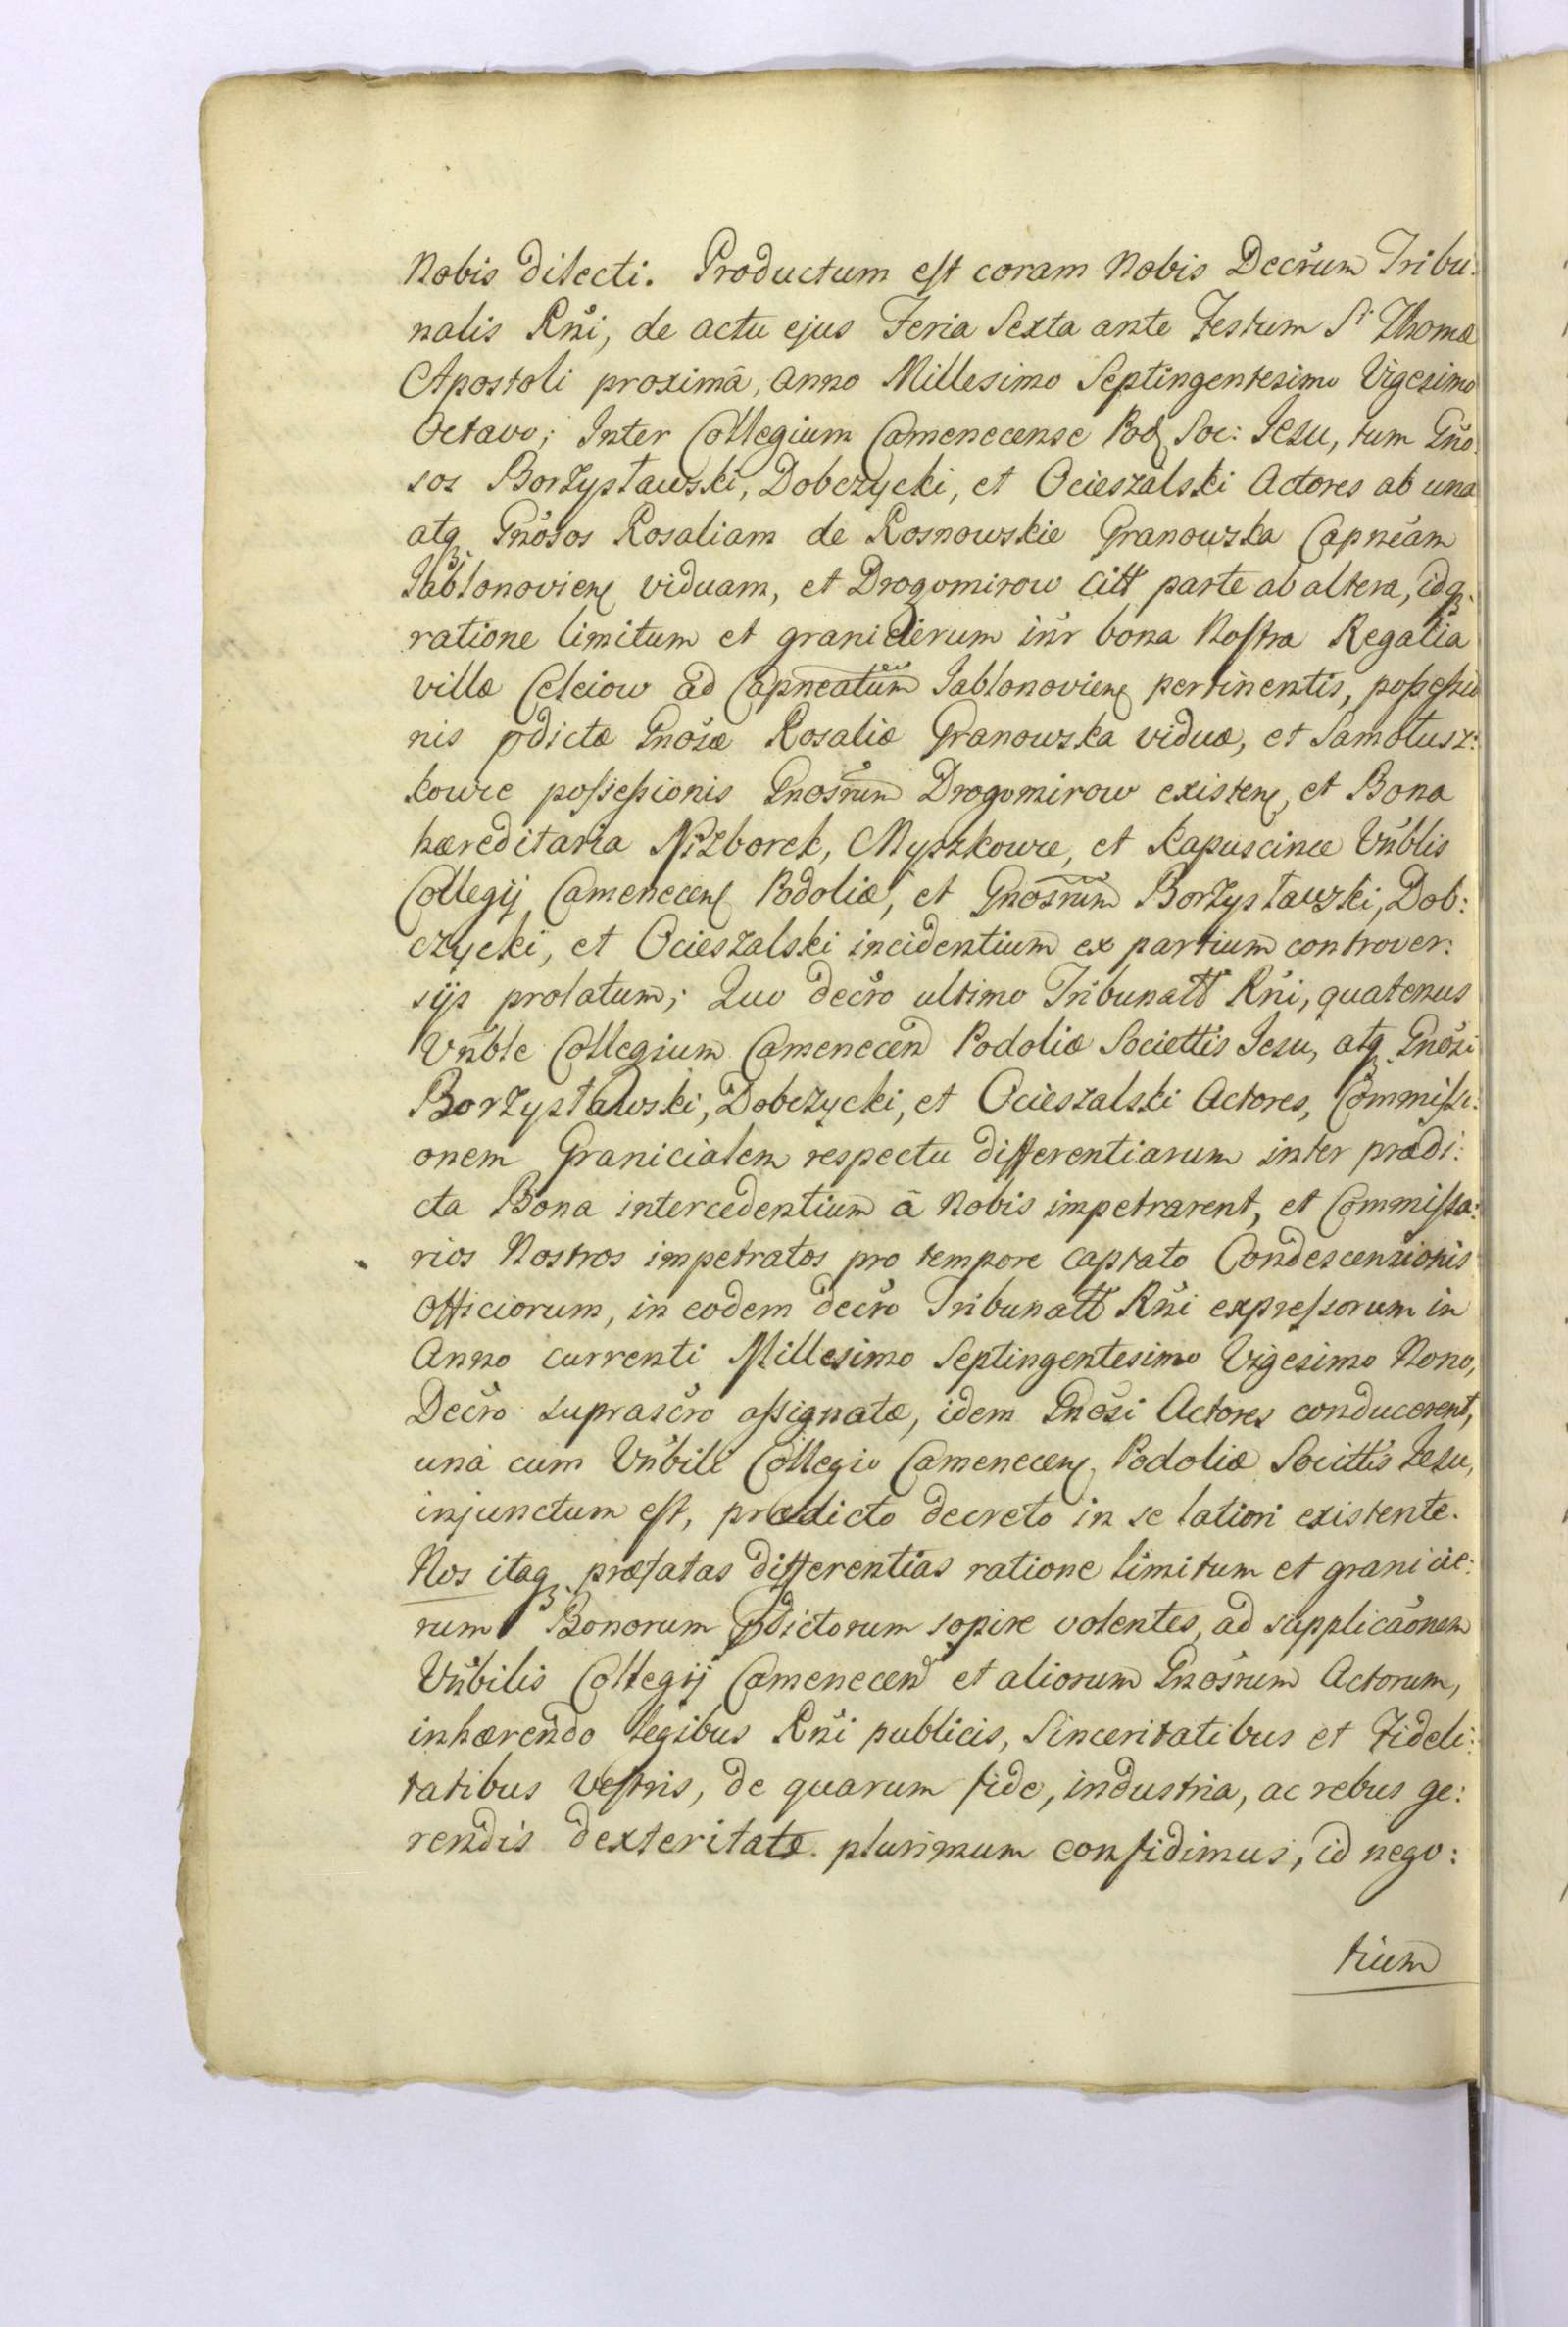 Nobis dilecti. Productum est coram Nobis Decrum Tribu:
nalis Rńi, de actu ejus Feria Sexta ante Festum S^ti Thomæ
Apostoli proximâ, Anno Millesimo Septingentesimo Vigesimo
Octavo; Inter Collegium Camenecense Pod Soc: Jesu, tum Gńo
sos Borzysławski, Dobczycki, et Ocieszalski Actores ab una
atq Gńosos Rosaliam de Rosnowskie Granowska Capnéam
Jabłonovien viduam, et Drogomirow Citt parte ab altera, idq
ratione limitum et granicierum inr bona Nostra Regalia
villæ Celeiow ad Capneatum Jablonovien pertinentis, possessio
nis pdictæ Gnosæ Rosaliæ Granowska viduæ, et Samołusz:
kowce possessionis Gnosrum Drogomirow existen, et Bona
hæreditaria Niżborek, Myszkowce, et Kapuscince Vńblis
Collegij Camenecen Podoliæ, et Gnosrum Borzysławski, Dob:
czycki, et Ocieszalski incidentium ex partium controver:
sijs prolatum; Quo decro ultimo Tribunall Rńi, quatenus
Vńble Collegium Camenecen Podoliæ Societtis Jesu, atq Gnosi
Borzysławski, Dobczycki, et Ocieszalski Actores, Commissi:
onem Granicialem respectu differentiarum inter prædi:
cta Bona intercedentium â Nobis impetrarent, et Commissa:
rios Nostros impetratos pro tempore captato Condescensionis
Officiorum, in eodem decro Tribunall Rńi expressorum in
Anno currenti Millesimo Septingentesimo Vigesimo Nono,
Decro suprascro assignatæ, idem Gnosi Actores conducerent,
unà cum Vńbili Collegio Camenecen Podoliæ Socittis Jesu,
injunctum est, prædicto decreto in se latiori existente.
Nos itaq præfatas differentias ratione limitum et granicie:
rum Bonorum pdictorum sopire volentes, ad supplicaonem
Vńbilis Collegij Camenecen et aliorum Gnosrum Actorum,
inhærendo legibus Rńi publicis, Sinceritatibus et Fideli:
tatibus Vestris, de quarum fide, industria, ac rebus ge:
rendis dexteritate plurimum confidimus, id nego:
tium